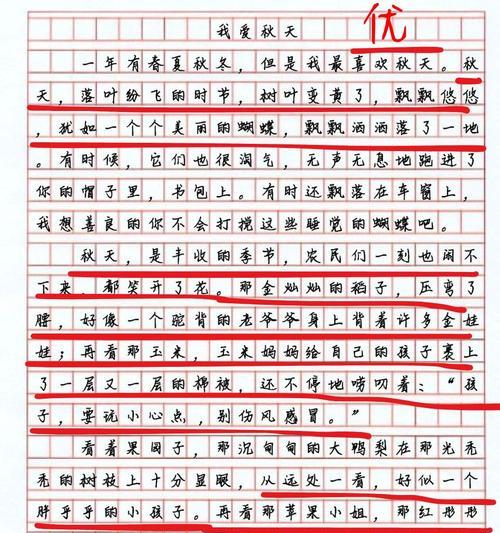 优
我爱秋天
一年有春夏秋冬，但是我最喜欢秋天。秋
天，落叶纷飞的时节，树叶变黄了，飘飘悠悠
，犹如一个个美丽的蝴蝶，飘飘洒洒落了一地
。有时候，它们也很淘气，无声无息地跑进了
你的帽子里，书包上。有时还飘落在车窗上，
我想善良的你不会打搅这些睡觉的蝴蝶吧。
秋天，是丰收的季节，农民们一刻也闲不
下来，都笑开了花。那金灿灿的稻子，压弯了
腰，好像一个驼背的老爷爷身上背着许多金娃
娃；再看那玉米，玉米妈妈给自己的孩子裹上
了一层又一层的棉被，还不停地唠叨着：“孩
子，要玩小心点，别伤风感冒。”
看着果园子，那沉甸甸的大鸭梨在那光秃
秃的树枝上十分显眼，从远处一看，好似一个
胖乎乎的小孩子。再看那苹果小姐，那红彤彤